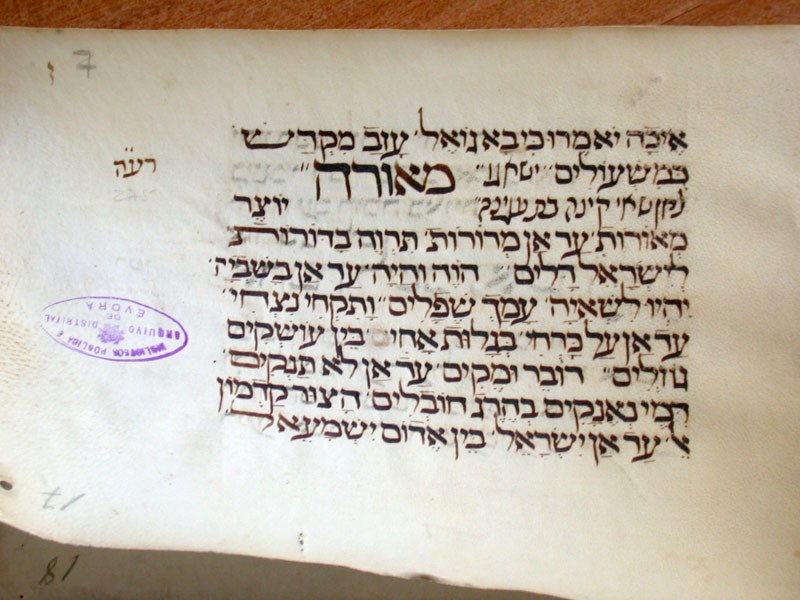 7
איכה יאמרו כי בא גואל עזב מקדש
כמשעולים״ מאורה
רעה
יוצר
מאורות עד אן מרורות תרוה בדורות
לישראל דלים״ הוה והיה עד אן בשביה
יהיו לשאיה עמך שפלים״ ותקחי נצחי
עד אן על כרחי בגלות אחי בין עושקים
גוזלים״ דובר ומקים עד אן לא תנקים
דמי נאנקים בהרג חובלים״ הצור קדמון
אל עד אן ישראל בין אדום ישמעאל
BIBLIOTECA PÚBLICA E
ARQUIVO DISTRITAL
DE
ÉVORA
17
18